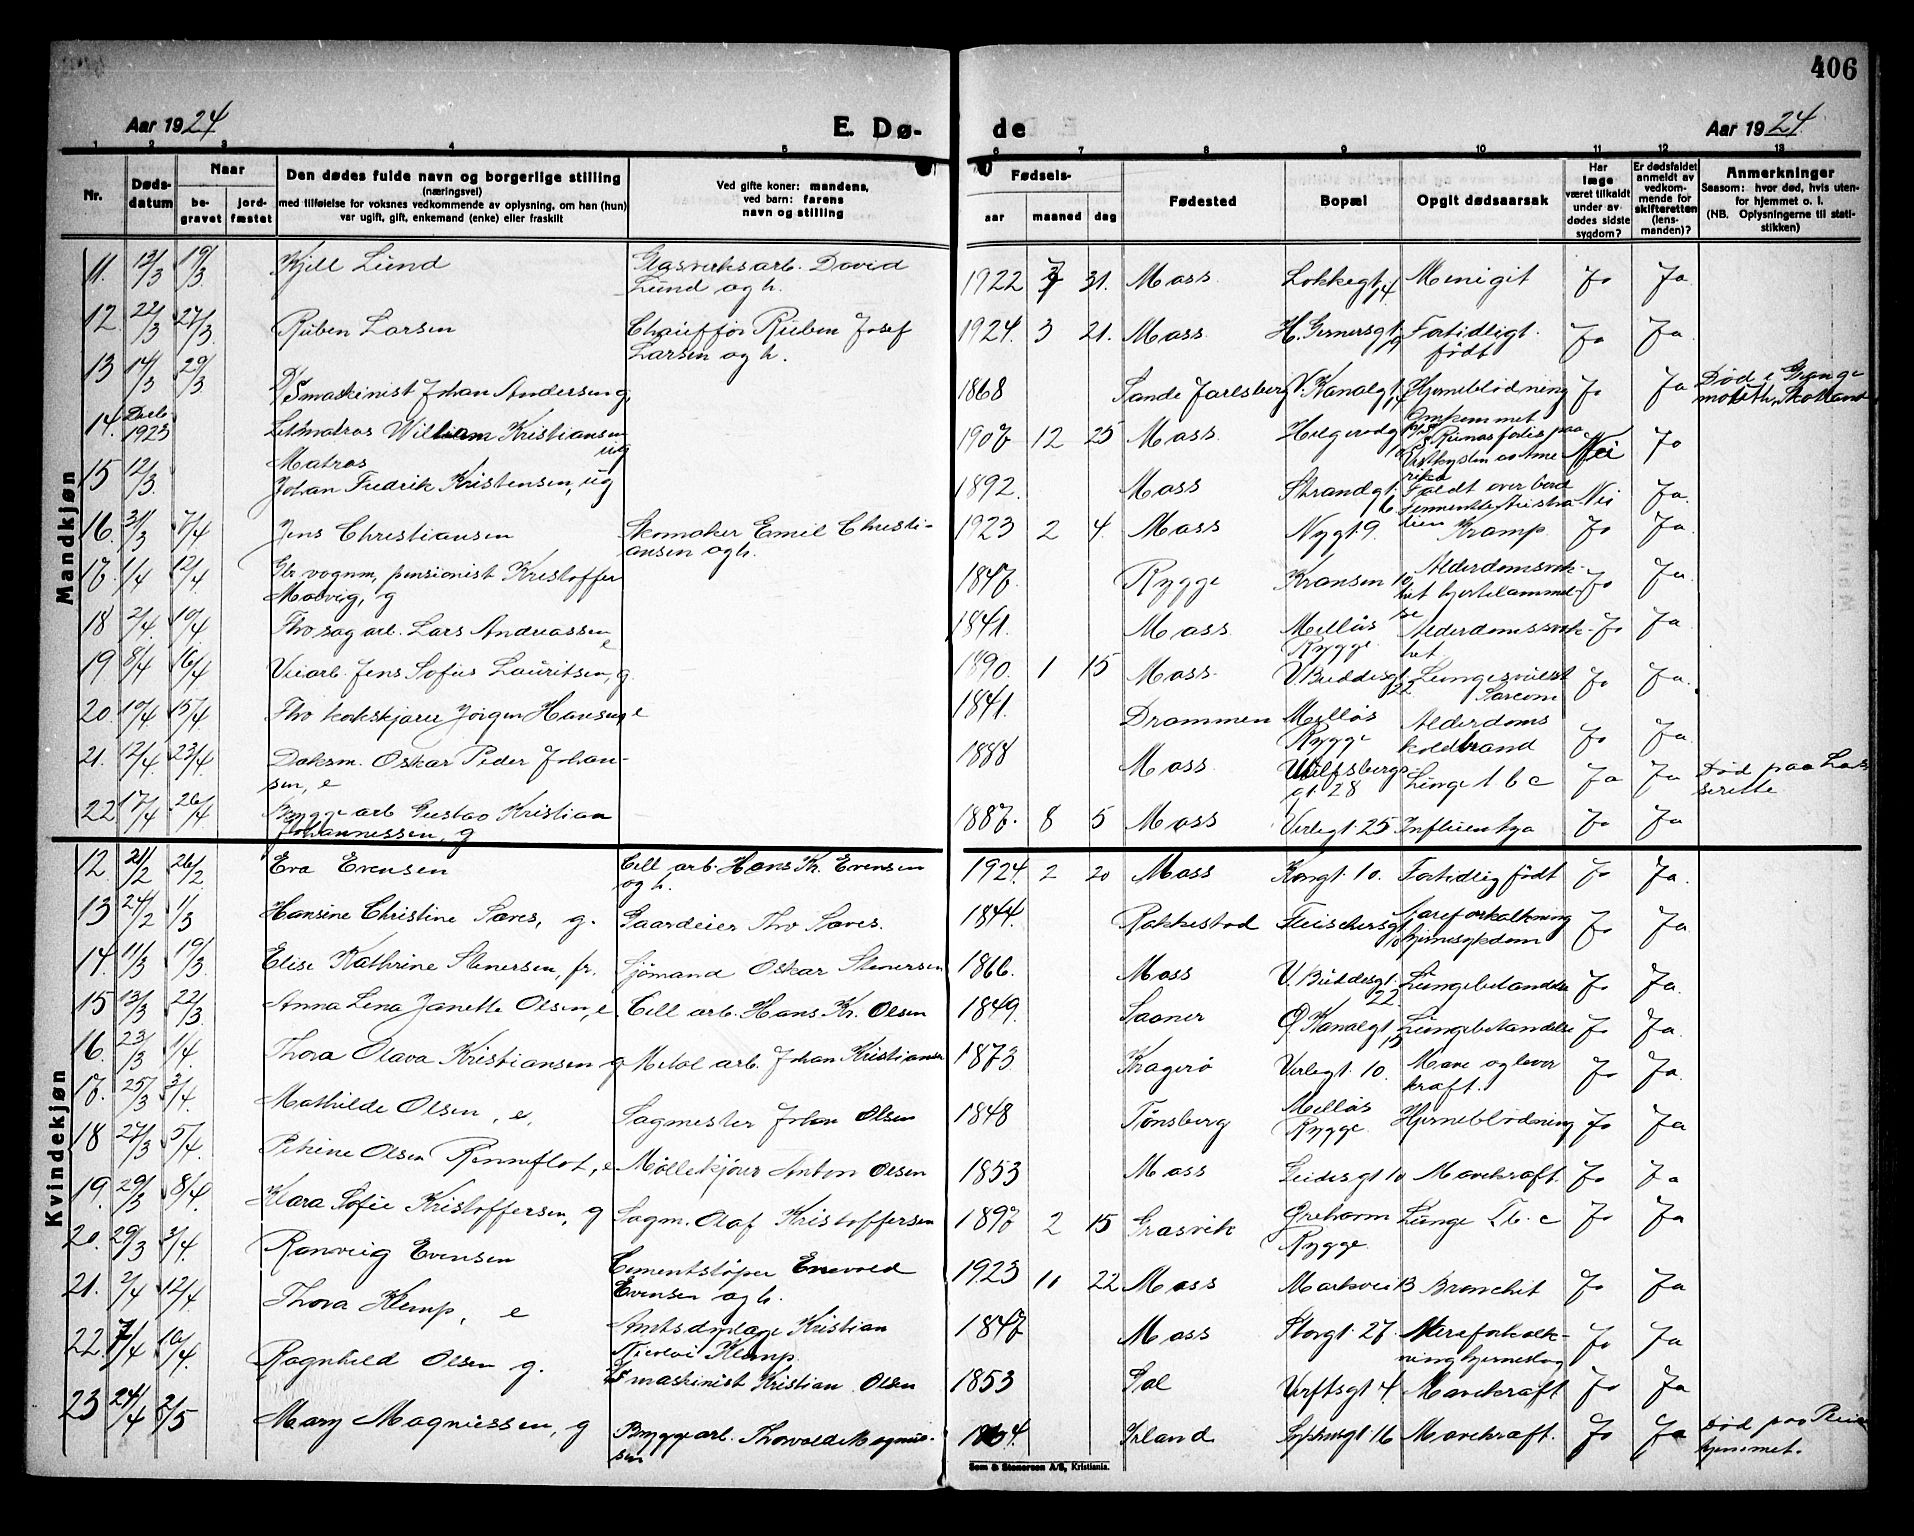 406
Aar 1924
E. Dø-
de
Aar 1924
1 2 3 4 5 6 7 8 9 10 11 12 13
Nr.
Døds-
datum
Naar
be-
gravet
jord-
fæstet
Den dødes fulde navn og borgerlige stilling
(næringsvei)
med tilføielse for voksnes vedkommende av oplysning, om han (hun)
var ugift, gift, enkemand (enke) eller fraskilt
Ved gifte koner: mandens,
ved barn: farens
navn og stilling
Fødsels-
aar maaned dag
Fødested
Bopæl
Opgit dødsaarsak
Har
læge
været tilkaldt
under av-
dødes sidste
sygdom?
Er dødsfaldet
anmeldt av
vedkom-
mende for
skifteretten
(lens-
manden)?
Anmerkninger
Saasom: hvor død, hvis uten-
for hjemmet o. l.
(NB. Oplysningerne til stati-
stikken)
Mandkjøn
11. 12/3 19/3 Kjell Lund Glasverksarb. David
Lund og h. 1922 31. Moss Løkkegt. 14 Meningit Ja Ja
12 22/3 27/3 Ruben Larsen Chauffør Ruben Josef
Larsen og h. 1924. 3 21. Moss H. Gernersgt. Fortidligt
født Ja Ja
13 14/3 29/3 D/S maskinist Johan Andersen g, 1868 Sande Jarlsberg V. Kanalgt. Hjerneblødning Ja Ja Død i Grange
mouth, Skotland
14. Decbr.
1923 Letmatros William Kristiansen
ug 1907 12 25 Moss Helgerødg Omkom met
D/S Runas forlis paa
Vestkysten av Ame
rika Nei Ja
15 12/3. Matros
Johan Fredrik Kristensen, ug 1892. Moss Strandgt.
6 Faldt over bord
Australien Nei Ja.
16. 31/3 7/4 Jens Christiansen Skomaker Emil Christi-
ansen og h. 1923 2 4. Moss Nygt 9. Kramp Ja Ja
17. 1/4 12/4 vognm, pensionist Kristoffer
Molvig, g 1847. Rygge Kransen 10 Alderdomssvak-
het hjertelammel-
se Ja Ja
18 2/4. 10/4. Fhv sag arb. Lars Andreassen
e 1841. Moss Melløs
Rygge Alderdomssvak-
het. Ja Ja
19 8/4 16/4 Veiarb. Jens Sofus Lauritsen, g. 1890. 1 15 Moss. V. Buddesgt.
22 Lungesvulst
Sarcom Ja Ja.
20 10/4 15/4 Fhv kokskjører Jørgen Hansen, e 1841. Drammen Melløs
Rygge Alderdoms
koldbrand Ja Ja
21. 12/4. 23/4. Daksm. Oskar Peder Johan-
sen, e 1888 Moss Ulfsbergs-
gt. 28 Lunge t b c Ja Ja Død paa Laza
rette
22. 17/4 26/4 Bygge arb Gustav Kristian
Johannessen, g 1887. 8 5 Moss Verlegt. 25 Influenza Ja Ja
Kvindekjøn
12 21/2 26/2 Eva Evensen Cell arb. Hans Kr. Evensen
og h. 1924. 2 20 Moss Kongt. 10. Fortidlig født Ja Ja.
13 24/2 1/3 Hansine Christine Sæves, g. Gaardeier Thv Sæves. 1844. Rakkestad Fleischersgt.
10 Aareforkalkning
hjernesykdom Ja Ja
14. 11/3 19/3 Elise Kathrine Stenersen, fr. Sjømand Oskar Stenersen 1866. Moss V. Buddesgt.
22 Lungebetændelse Ja Ja.
15 13/3 22/3. Anna Lena Janette Olsen, e. Cell arb. Hans Kr. Olsen 1849. Saaner Ø. Kanalgt.
13 Lungebetændelse Ja Ja.
16. 23/3 1/4. Thora Olava Kristiansen g Metal arb. Johan Kristiansen 1873 Kragerø Verlegt. 10. Mave og lever
kræft. Ja Ja.
17. 25/3 3/4. Mathilde Olsen, e, Sagmester Johan Olsen 1848 Tønsberg Melløs
Rygge Hjerneblødning Ja Ja
18 27/3 5/4. Petrine Olsen Renneflot, e Møllekjører Anton Olsen 1853 Moss Leidesgt 10 Mavekræft. Ja Ja
19. 29/3 8/4. Klara Sofie Kristoffersen, g Sagm. Olaf Kristoffersen 1897 2 15 Græsvik
Rygge. Lunge Tb. c Ja Ja
20. 29/3 3/4. Ranveig Evensen Cementstøper Enevold
Evensen og h. 1923 11 22 Moss Markvei 13 Bronchit Ja Ja
21. 2/4 12/4 Thora Klemp, e Amtsdyrlæge Kristian
Nicolai Klemp. 1847 Moss Storgt. 27. Aareforkalk-
ning hjerneslag Ja Ja
22. 7/4 10/4. Ragnhild Olsen g. D/S maskinist Kristian Olsen 1853 Verftsgt 4. Mavekræft Ja Ja
23 24/4 2/5 Mary Magnussen, g Byggearb. Thorvald Magnus-
sen 1864. Irland Sophusgt 16 Mavekræft. Ja Ja Død paa Pleie
hjemmet.
Sem & Stenersen A/S, Kristiania.